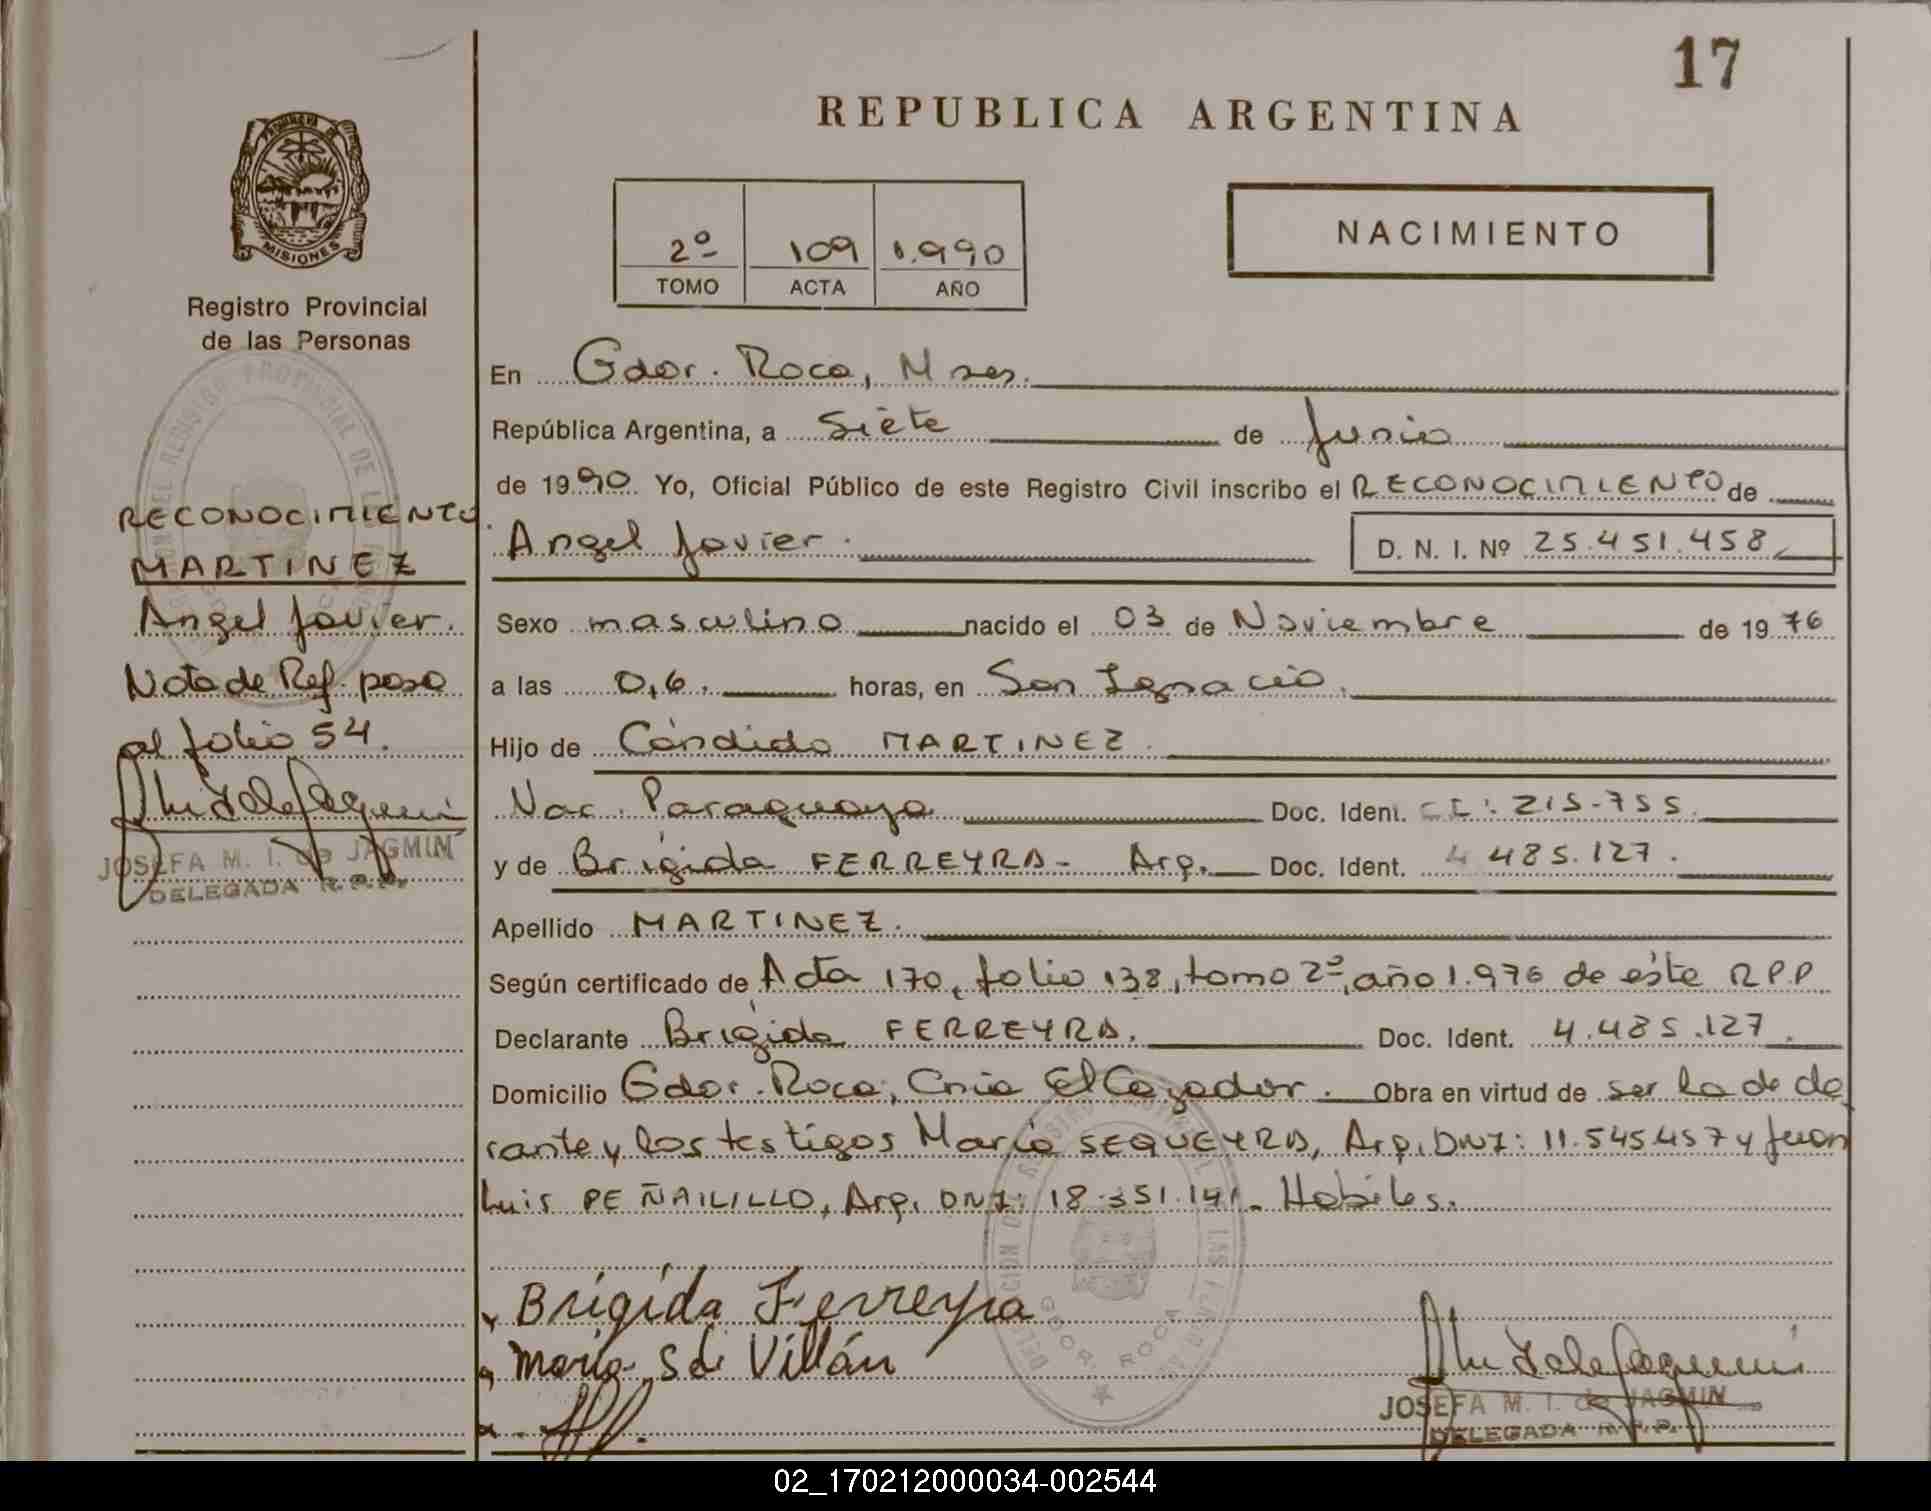 17
REPUBLICA ARGENTINA
PROVINCIA DE
MISIONES
Registro Provincial
de las Personas
2º 109 1.990
TOMO ACTA AÑO
NACIMIENTO
En Gdor. Roca, Mnes.
República Argentina, a Siete de Junio
de 1990 Yo, Oficial Público de este Registro Civil inscribo el RECONOCIMIENTO de
Angel Javier. D. N. I. Nº 25.451.458
Sexo masculino nacido el 03 de Noviembre de 1976
a las 0,6. horas, en San Ignacio.
Hijo de Cándido MARTINEZ.
Nac. Paraguaya Doc. Ident. C.I: 215-755.
y de Brígida FERREYRA- Arg. Doc. Ident. 4 485.127.
Apellido MARTINEZ.
Según certificado de Acta 170, folio 138, tomo 2º, año 1.976 de éste R.P.P
Declarante Brígida FERREYRA. Doc. Ident. 4.485.127.
Domicilio Gdor. Roca, Cnia El Cazador. Obra en virtud de ser la de cla
rante y los testigos María SEQUEYRA, Arg. DNI: 11.545.457 y Juan
Luis PEÑAILILLO, Arg. DNI: 18.351.141. Hábiles.
Brígida Ferreyra
Maria S de Villán
JOSEFA M. I. de JAGMIN
DELEGADA R.P.P.
GDOR. ROCA
RECONOCIMIENTO
MARTINEZ
Angel Javier.
Nota de Ref. pasa
al folio 54.
JOSEFA M. I. de JAGMIN
DELEGADA R.P.P.
02_170212000034-002544